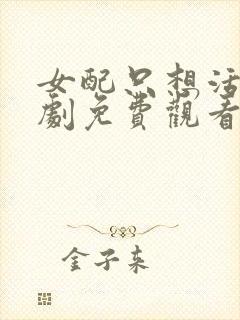 女配只想活
劇免費觀看
金子来